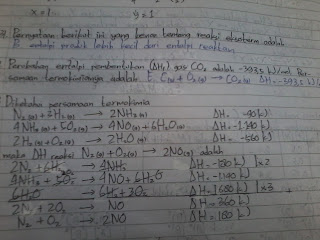 x = 1 y = 1
7. Pernyataan berikut ini yang benar tentang reaksi eksoterm adalah
B. entalpi produk lebih kecil dari entalpi reaktan
Perubahan entalpi pembentukan (ΔHf) gas CO₂ adalah -393,5 kJ/mol. Per-
samaan termokimianya adalah E. C(s) + O₂(g) → CO₂(g) ΔH = -393,5 kJ
Diketahui persamaan termokimia
N₂(g) + 3H₂(g) → 2NH₃(g) ΔH = -90 kJ
4NH₃(g) + 5O₂(g) → 4NO(g) + 6H₂O(g) ΔH = -1.140 kJ
2H₂(g) + O₂(g) → 2H₂O(g) ΔH = -560 kJ
maka ΔH reaksi N₂(g) + O₂(g) → 2NO(g) adalah
2N₂ + 6H₂ → 4NH₃ ΔH = -180 kJ x2
4NH₃ + 5O₂ → 4NO + 6H₂O ΔH = -1140 kJ
6H₂O → 6H₂ + 3O₂ ΔH = 1680 kJ x3
2N₂ + 2O₂ → NO ΔH = 360 kJ
N₂ + O₂ → 2NO ΔH = 180 kJ